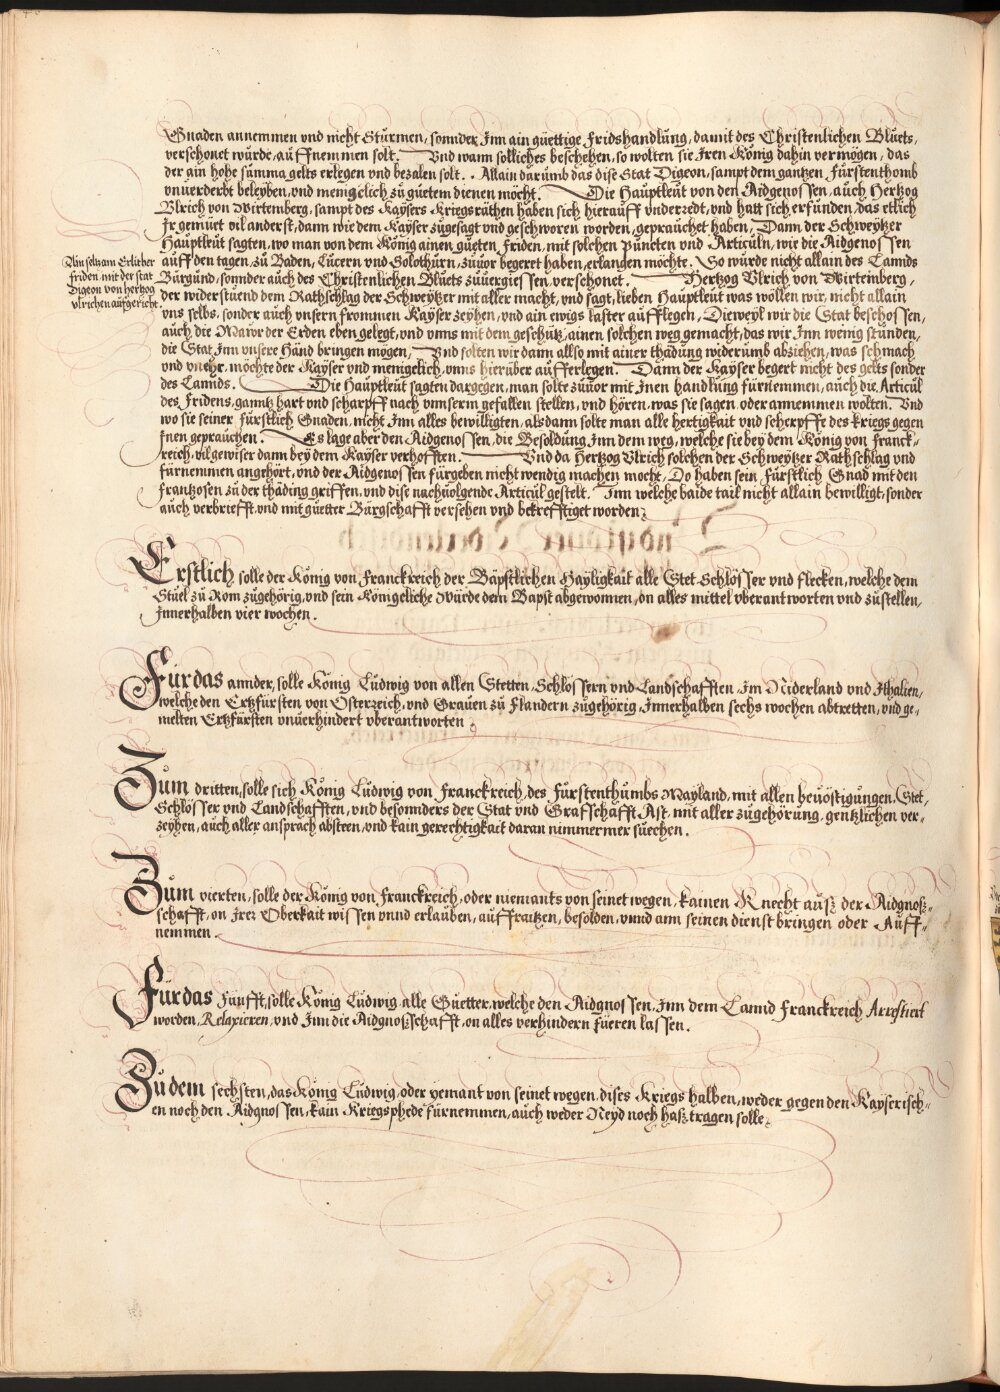 Gnaden annemmen vnd nicht Stürmen, sonnder Inn ain güettige fridshandlüng, damit des Christenlichen Blüets,
verschonet würde, aüffnemmen solt. Vnd wann solliches beschehen, so wolten sie Iren König dahin vermögen, das
der ain hohe summa gelts erlegen vnd bezalen solt. Allain darumb das dise Stat Digeon, sampt dem gantzen fürstenthomb
vnuerderbt beleyben, vnd menigclich zü güetem dienen möcht. Die Haüptleüt von den Aidgenossen, aüch Hertzog
Vlrich von Wirtemberg, sampt des Kaÿsers Kriegsräthen haben sich hieraüff vnderredt, vnd hatt sich erfünden, das etlich
Ir gemüet vil anderst, dann wie dem Kaÿser zügesagt vnd geschworen worden, gepraüchet haben, Dann der Schweÿtzer
Haüptleüt sagten, wo man von dem König ainen güeten friden, mit solchen püncten vnd Articüln, wie die Aidgenossen
aüff den tagen, zü Baden, Lücern vnd Solothürn, züüor begeret haben, erlangen möchte. So würde nicht allain des Lannds
Bürgünd, sonnder aüch des Christenlichen Blüets züüergiessen, verschonet. Hertzog Vlrich von Wirtemberg,
der widerstüend dem Rathschlag der Schweÿtzer mit aller macht, vnd sagt, lieben Haüptleüt was wöllen wir, nicht allain
vns selbs, sonder aüch vnsern frommen Kaÿser zeÿhen, vnd ain ewigs laster aüfflegen, Dieweÿl wir die Stat beschossen,
aüch die Maür der Erden eben gelegt, vnd vnns mit dem geschütz, ainen solchen weg gemacht, das wir Inn wenig stünden,
die Stat Inn vnsere Händ bringen mögen, Vnd solten wir dann allso mit ainer thädüng widerümb abziehen, was schmach
vnd vnehr, möchte der Kaÿser vnd menigclich, vnns hierüber aüfferlegen. Dann der Kaÿser begert nicht des gelts sonder
des Lannds. Die Haüptleüt sagten dargegen, man solte züüor mit Inen handlüng fürnemmen, aüch die Articül
des fridens, ganntz hart vnd scharpff nach vnnserm gefallen stellen, vnd hören, was sie sagen, oder annemmen wolten. Vnd
wo sie seiner fürstlich Gnaden, nicht Inn alles bewilligten, alsdann solte man alle hertigkait vnd scherpffe des kriegs gegen
Inen gepraüchen. Es lage aber den Aidgnossen, die Besoldüng Inn dem weg, welche sie beÿ dem König von franck-
reich, vil gewiser dann beÿ dem Kaÿser verhofften. Vnd da Hertzog Vlrich solchen der Schweÿtzer Rathschlag vnd
fürnemmen angehört, vnd der Aidgnossen fürgeben nicht wendig machen mocht, Do haben sein fürstlich Gnad mit den
frantzosen zü der thäding griffen, vnd dise nachüolgende Articül gestelt. Inn welche baide tail nicht allain bewilligt, sonder
aüch verbriefft, vnd mit güetter Bürgschafft versehen vnd bekrefftiget worden.
Ain seltzam Erlicher
friden mit der stat
Digeon von hertzog
vlrichen aüfgericht
Erstlich solle der König von franckreich der Bäpstlichen Haÿligkait alle Stet Schlösser vnd flecken, welche dem
Stüel zü Rom zügehörig, vnd sein Königeliche Würde dem Bapst abgewonnen, on alles mittel vberantworten vnd züstellen,
Innerhalben vier wochen.
Für das annder, solle König Lüdwig von allen Stetten, Schlossern vnd Landschafften, Im Niderland vnd Ithalien,
welche den Ertzfürsten von Osterreich, vnd Graüen zü flandern zügehörig, Innerhalben sechs wochen abtretten, vnd ge-
melten Ertzfürsten vnüerhindert vberantworten
Züm dritten, solle sich König Lüdwig von franckreich, des fürstenthümbs Maÿland, mit allen beüöstigüngen, Stet,
Schlösser vnd Landschafften, vnd besonnders der Stat vnd Grafschafft Ast, mit aller zügehörüng, gentzlichen ver-
zeÿhen, aüch aller ansprach absteen, vnd kain gerechtigkait daran nimmermer süechen.
Züm vierten, solle der König von franckreich, oder niemants von seinet wegen, kainen Knecht aüß der Aidgnoß-
schafft, on Irer Oberkait wissen vnnd erlaüben, aüffraitzen, besolden, vnnd ann seinen dienst bringen oder Aüff-
nemmen
Für das Fünfft, solle König Lüdwig alle Güetter, welche den Aidgnossen, Inn dem Lannd franckreich Arrestiert
worden, Relaxieren, vnd Inn die Aidgnoßschafft, on alles verhindern füeren lassen.
Zü dem sechsten, das König Lüdwig oder ÿemant von seinet wegen, dises Kriegs halben, weder gegen den Kaÿserisch-
en noch den Aidgnossen, kain Kriegsphede fürnemmen, aüch weder Neÿd noch haß tragen solle.